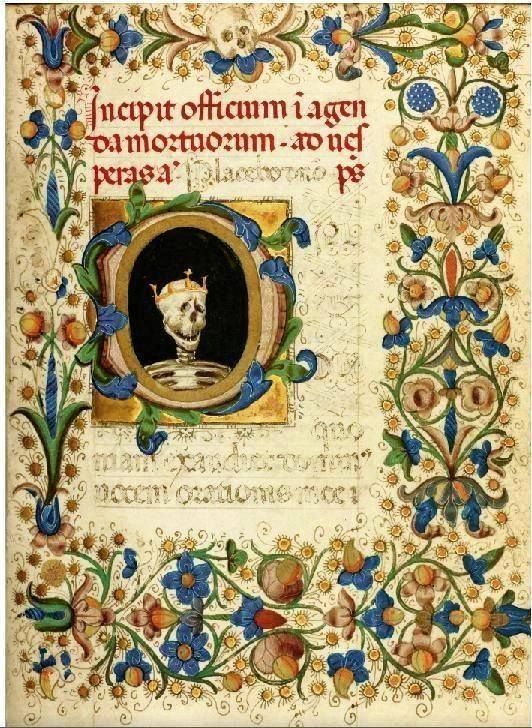 Incipit officium ī agen
da mortuorum · ad ueſ
peras aͣ Placebo dn̄o p̄s
quo
niam exaudiet domin⁹
uocem orationis mee ·